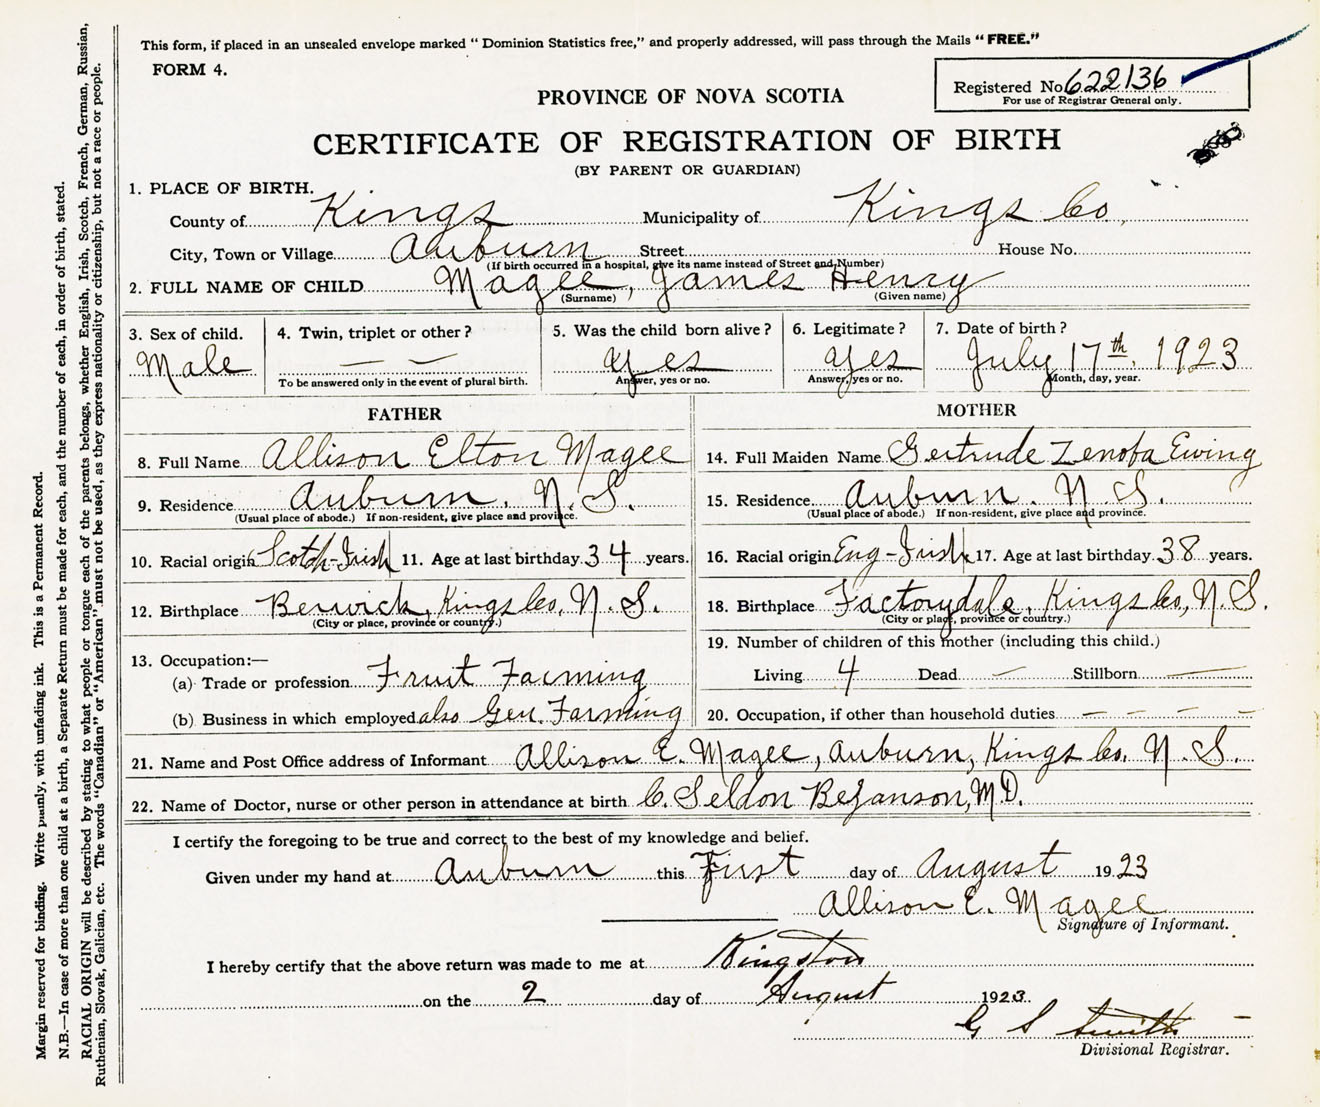 This form, if placed in an unsealed envelope marked " Dominion Statistics free," and properly addressed, will pass through the Mails " FREE."
FORM 4.
Registered No. 622136
For use of Registrar General only.
PROVINCE OF NOVA SCOTIA
CERTIFICATE OF REGISTRATION OF BIRTH
(BY PARENT OR GUARDIAN)
1. PLACE OF BIRTH.
County of Kings Municipality of Kings Co.
City, Town or Village Auburn Street House No.
(If birth occurred in a hospital, give its name instead of Street and Number)
2. FULL NAME OF CHILD Magee, James Henry
(Surname) (Given name)
3. Sex of child. 4. Twin, triplet or other? 5. Was the child born alive? 6. Legitimate? 7. Date of birth?
Male — — yes yes July 17th, 1923
To be answered only in the event of plural birth. Answer, yes or no. Answer, yes or no. Month, day, year.
FATHER MOTHER
8. Full Name Allison Elton Magee 14. Full Maiden Name Gertrude Zenoba Ewing
9. Residence Auburn, N. S. 15. Residence Auburn. N S.
(Usual place of abode.) If non-resident, give place and province. (Usual place of abode.) If non-resident, give place and province.
10. Racial origin Scotch-Irish 11. Age at last birthday 34 years. 16. Racial origin Eng-Irish 17. Age at last birthday 38 years.
12. Birthplace Berwick, Kings Co, N. S. 18. Birthplace Factorydale, Kings Co, N. S.
(City or place, province or country.) (City or place, province or country.)
19. Number of children of this mother (including this child.)
13. Occupation:—
(a) Trade or profession Fruit Farming Living 4 Dead — Stillborn —
(b) Business in which employed also Gen. Farming 20. Occupation, if other than household duties — — — —
21. Name and Post Office address of Informant Allison E. Magee, Auburn, Kings Co. N. S.
22. Name of Doctor, nurse or other person in attendance at birth C. Seldon Bezanson, M.D.
I certify the foregoing to be true and correct to the best of my knowledge and belief.
Given under my hand at Auburn this First day of August 1923
Allison E. Magee
Signature of Informant.
I hereby certify that the above return was made to me at Kingston
on the 2 day of August 1923.
G S Smith
Divisional Registrar.
Margin reserved for binding. Write plainly, with unfading ink. This is a Permanent Record.
N.B.—In case of more than one child at a birth, a Separate Return must be made for each, and the number of each, in order of birth, stated.
RACIAL ORIGIN will be described by stating to what people or tongue each of the parents belongs, whether English, Irish, Scotch, French, German, Russian,
Ruthenian, Slovak, Galician, etc. The words "Canadian" or "American" must not be used, as they express nationality or citizenship, but not a race or people.